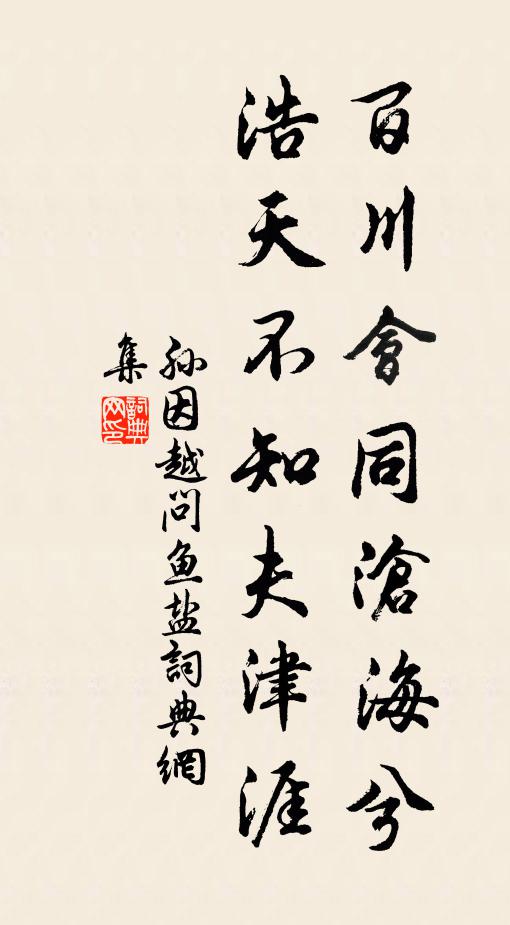 百川會同滄海兮
浩天不知夫津涯
孙因越问鱼盐詞典網
集
詞典
网印